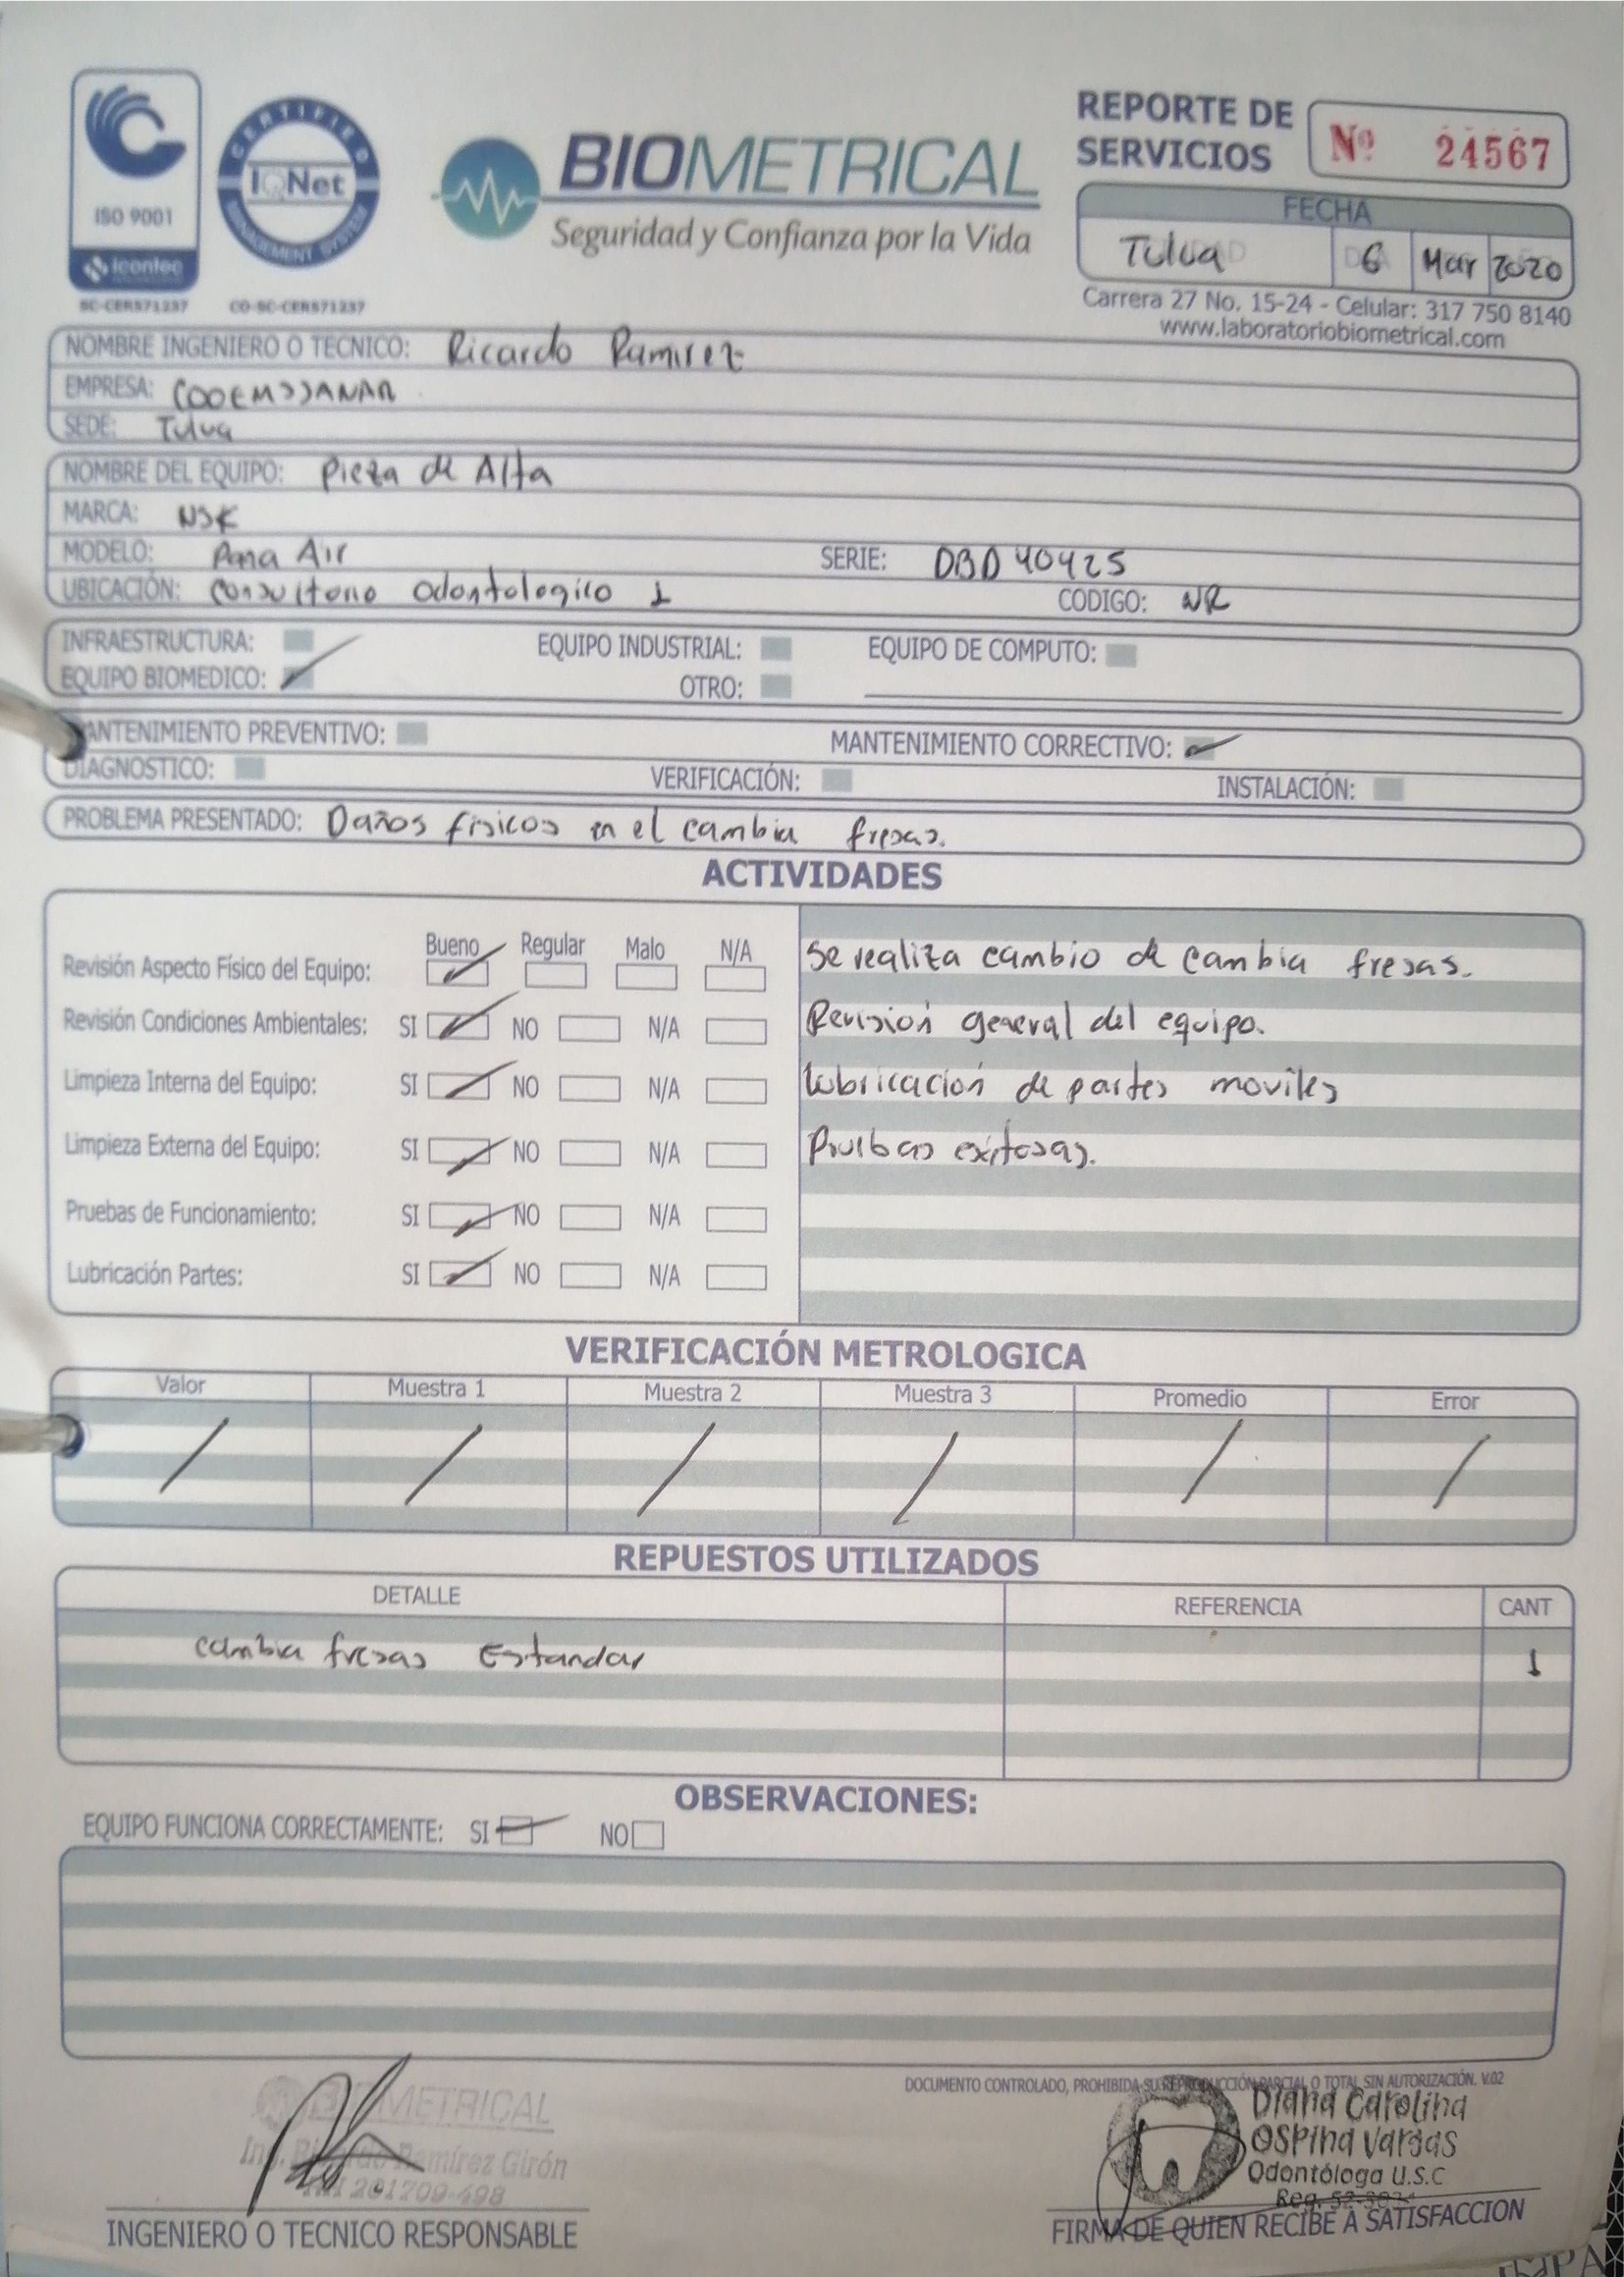 REPORTE DE SERVICIOS Nº 24567
ISO 9001
icontec
SC-CER571237
CERTIFIED
IQNet
MANAGEMENT SYSTEM
CO-SC-CER571237
BIOMETRICAL
Seguridad y Confianza por la Vida
FECHA
Tulua 6 Mar 2020
Carrera 27 No. 15-24 - Celular: 317 750 8140
www.laboratoriobiometrical.com
NOMBRE INGENIERO O TECNICO: Ricardo Ramirez
EMPRESA: COOEMSSANAR
SEDE: Tulua
NOMBRE DEL EQUIPO: Pieza de Alta
MARCA: NSK
MODELO: Pana Air SERIE: DBD40425
UBICACIÓN: Consultorio Odontologico 1 CODIGO: NR
INFRAESTRUCTURA: EQUIPO INDUSTRIAL: EQUIPO DE COMPUTO:
EQUIPO BIOMEDICO: OTRO:
MANTENIMIENTO PREVENTIVO: MANTENIMIENTO CORRECTIVO:
DIAGNOSTICO: VERIFICACIÓN: INSTALACIÓN:
PROBLEMA PRESENTADO: Daños fisicos en el cambia fresas.
ACTIVIDADES
Bueno Regular Malo N/A
Revisión Aspecto Físico del Equipo:
Revisión Condiciones Ambientales: SI NO N/A
Limpieza Interna del Equipo: SI NO N/A
Limpieza Externa del Equipo: SI NO N/A
Pruebas de Funcionamiento: SI NO N/A
Lubricación Partes: SI NO N/A
Se realiza cambio de cambia fresas.
Revisión general del equipo.
Lubricación de partes moviles
Pruebas exitosas.
VERIFICACIÓN METROLOGICA
Valor Muestra 1 Muestra 2 Muestra 3 Promedio Error
/ / / / / /
REPUESTOS UTILIZADOS
DETALLE REFERENCIA CANT
cambia fresas Estandar 1
OBSERVACIONES:
EQUIPO FUNCIONA CORRECTAMENTE: SI NO
DOCUMENTO CONTROLADO, PROHIBIDA SU REPRODUCCIÓN PARCIAL O TOTAL SIN AUTORIZACIÓN. V.02
BIOMETRICAL
Ing. Ricardo Ramírez Girón
201709-498
INGENIERO O TECNICO RESPONSABLE
Diana Carolina
Ospina Vargas
Odontóloga U.S.C
Reg.
FIRMA DE QUIEN RECIBE A SATISFACCION